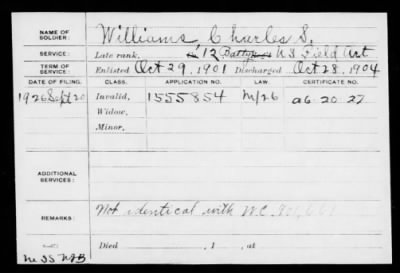 NAME OF SOLDIER: Williams Charles S.
SERVICE: Late rank, 12 Batty U S Field Art
TERM OF SERVICE Enlisted Oct 29, 1901 Discharged Oct 28, 1904
DATE OF FILING. CLASS. APPLICATION NO. LAW. CERTIFICATE NO.
1926 Sept 20 Invalid, 1555854 M/26 a6-20-27
Widow,
Minor,
ADDITIONAL SERVICES:
REMARKS: Not identical with W.C.
Died , 1 , at